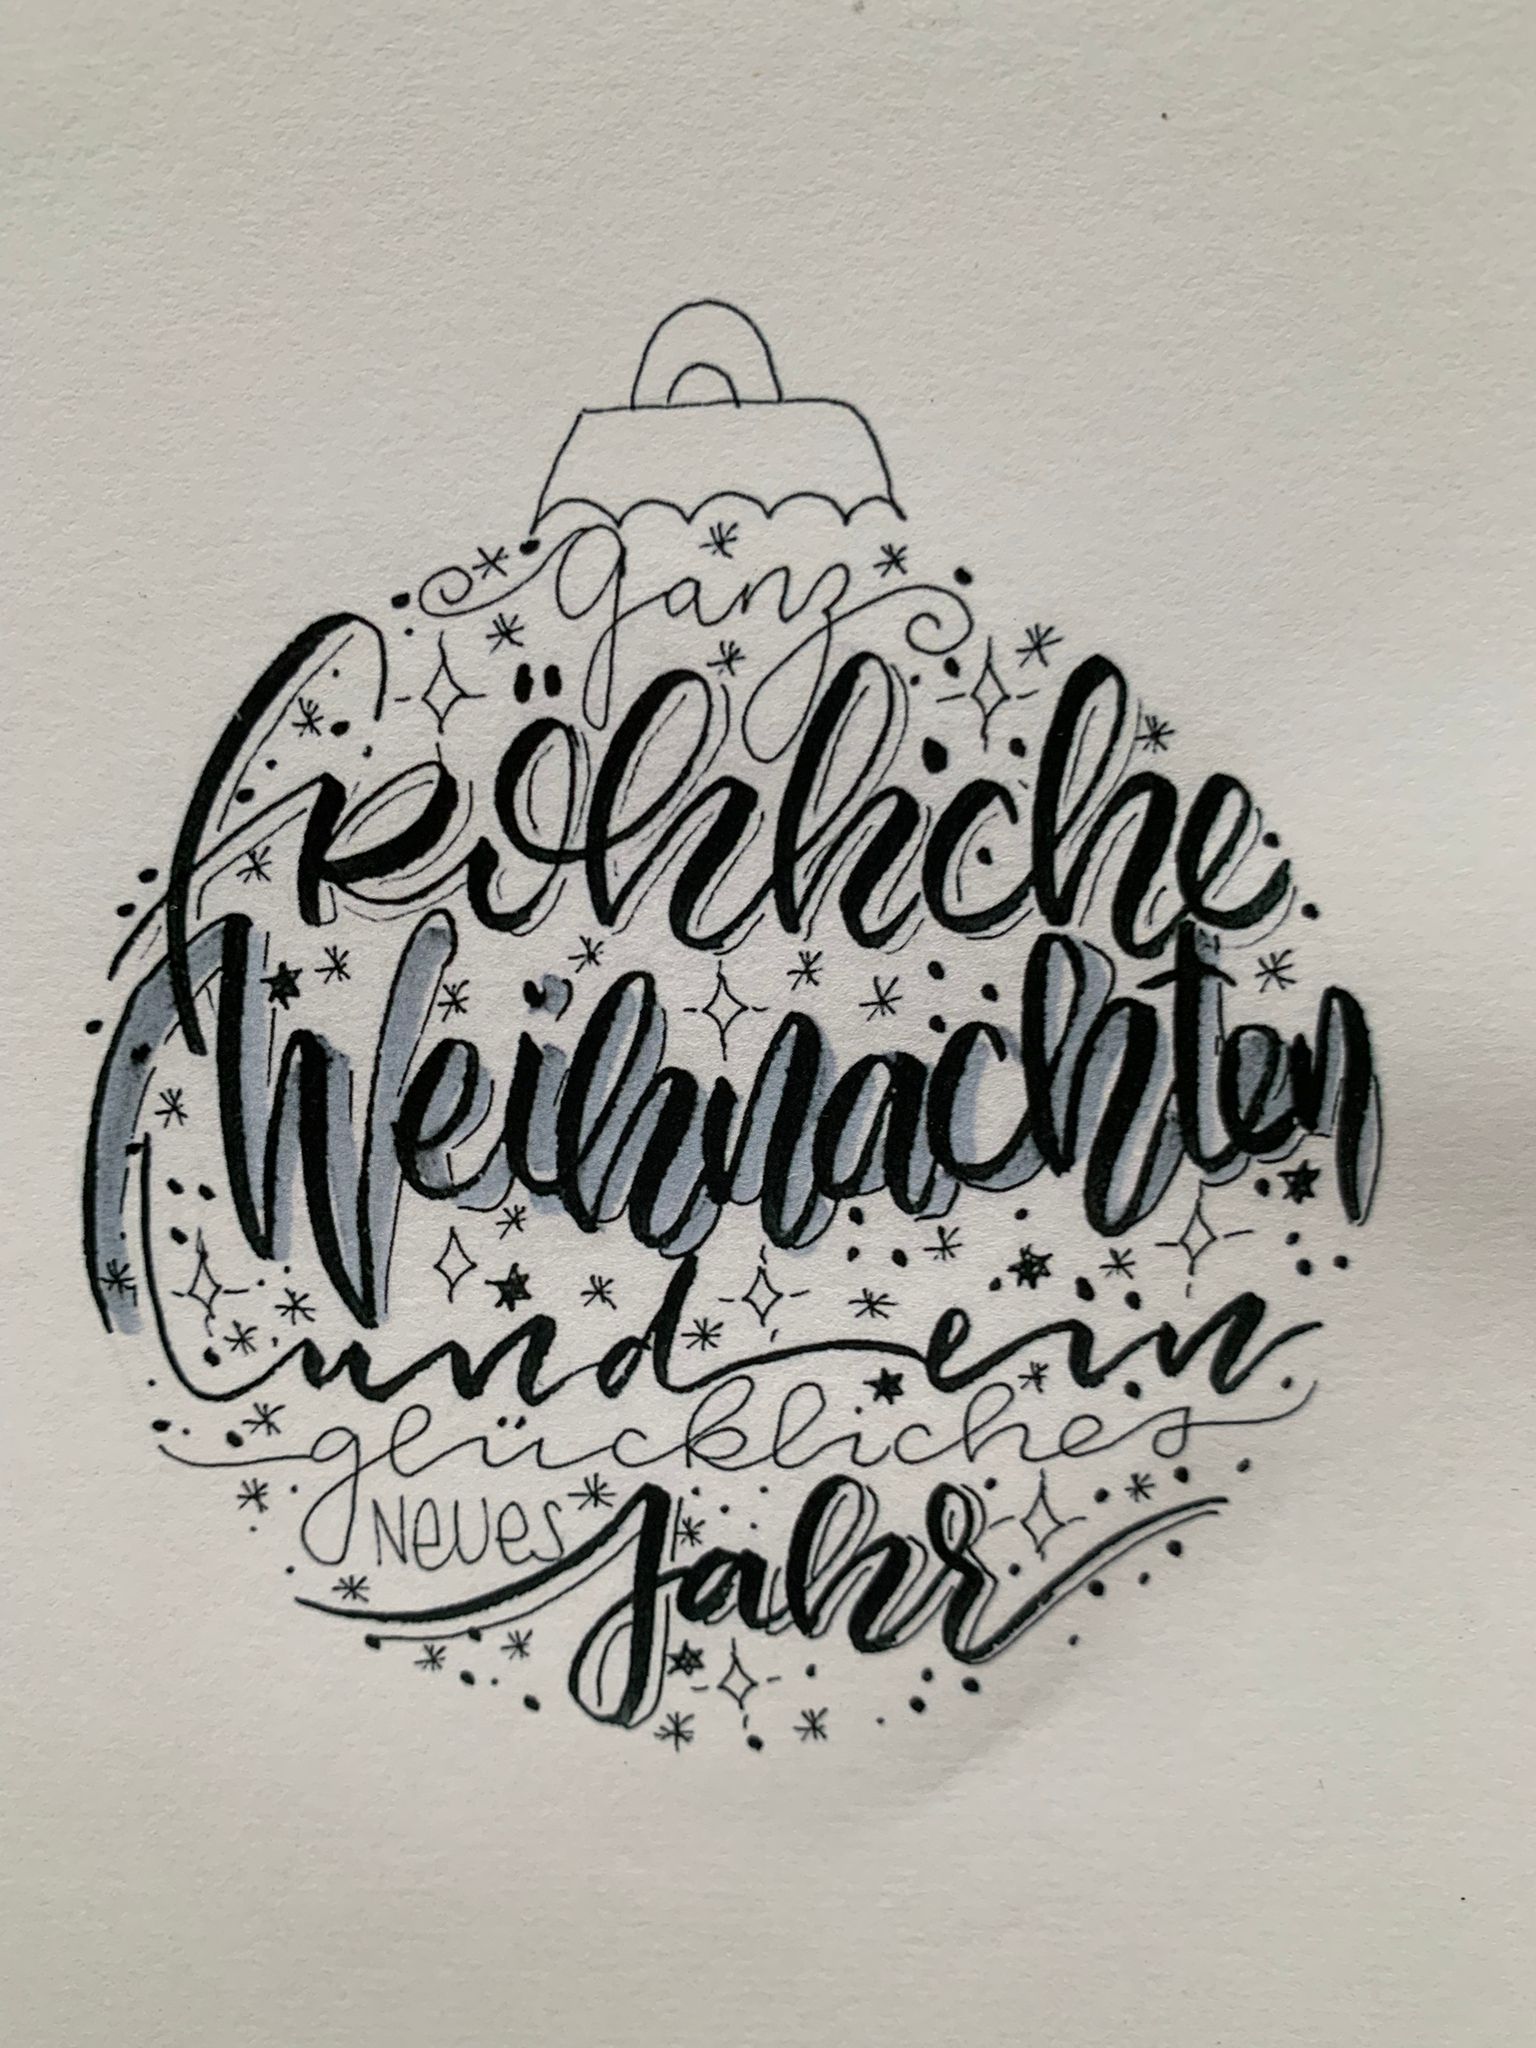 ganz
fröhliche
Weihnachten
und ein
glückliches
Neues Jahr